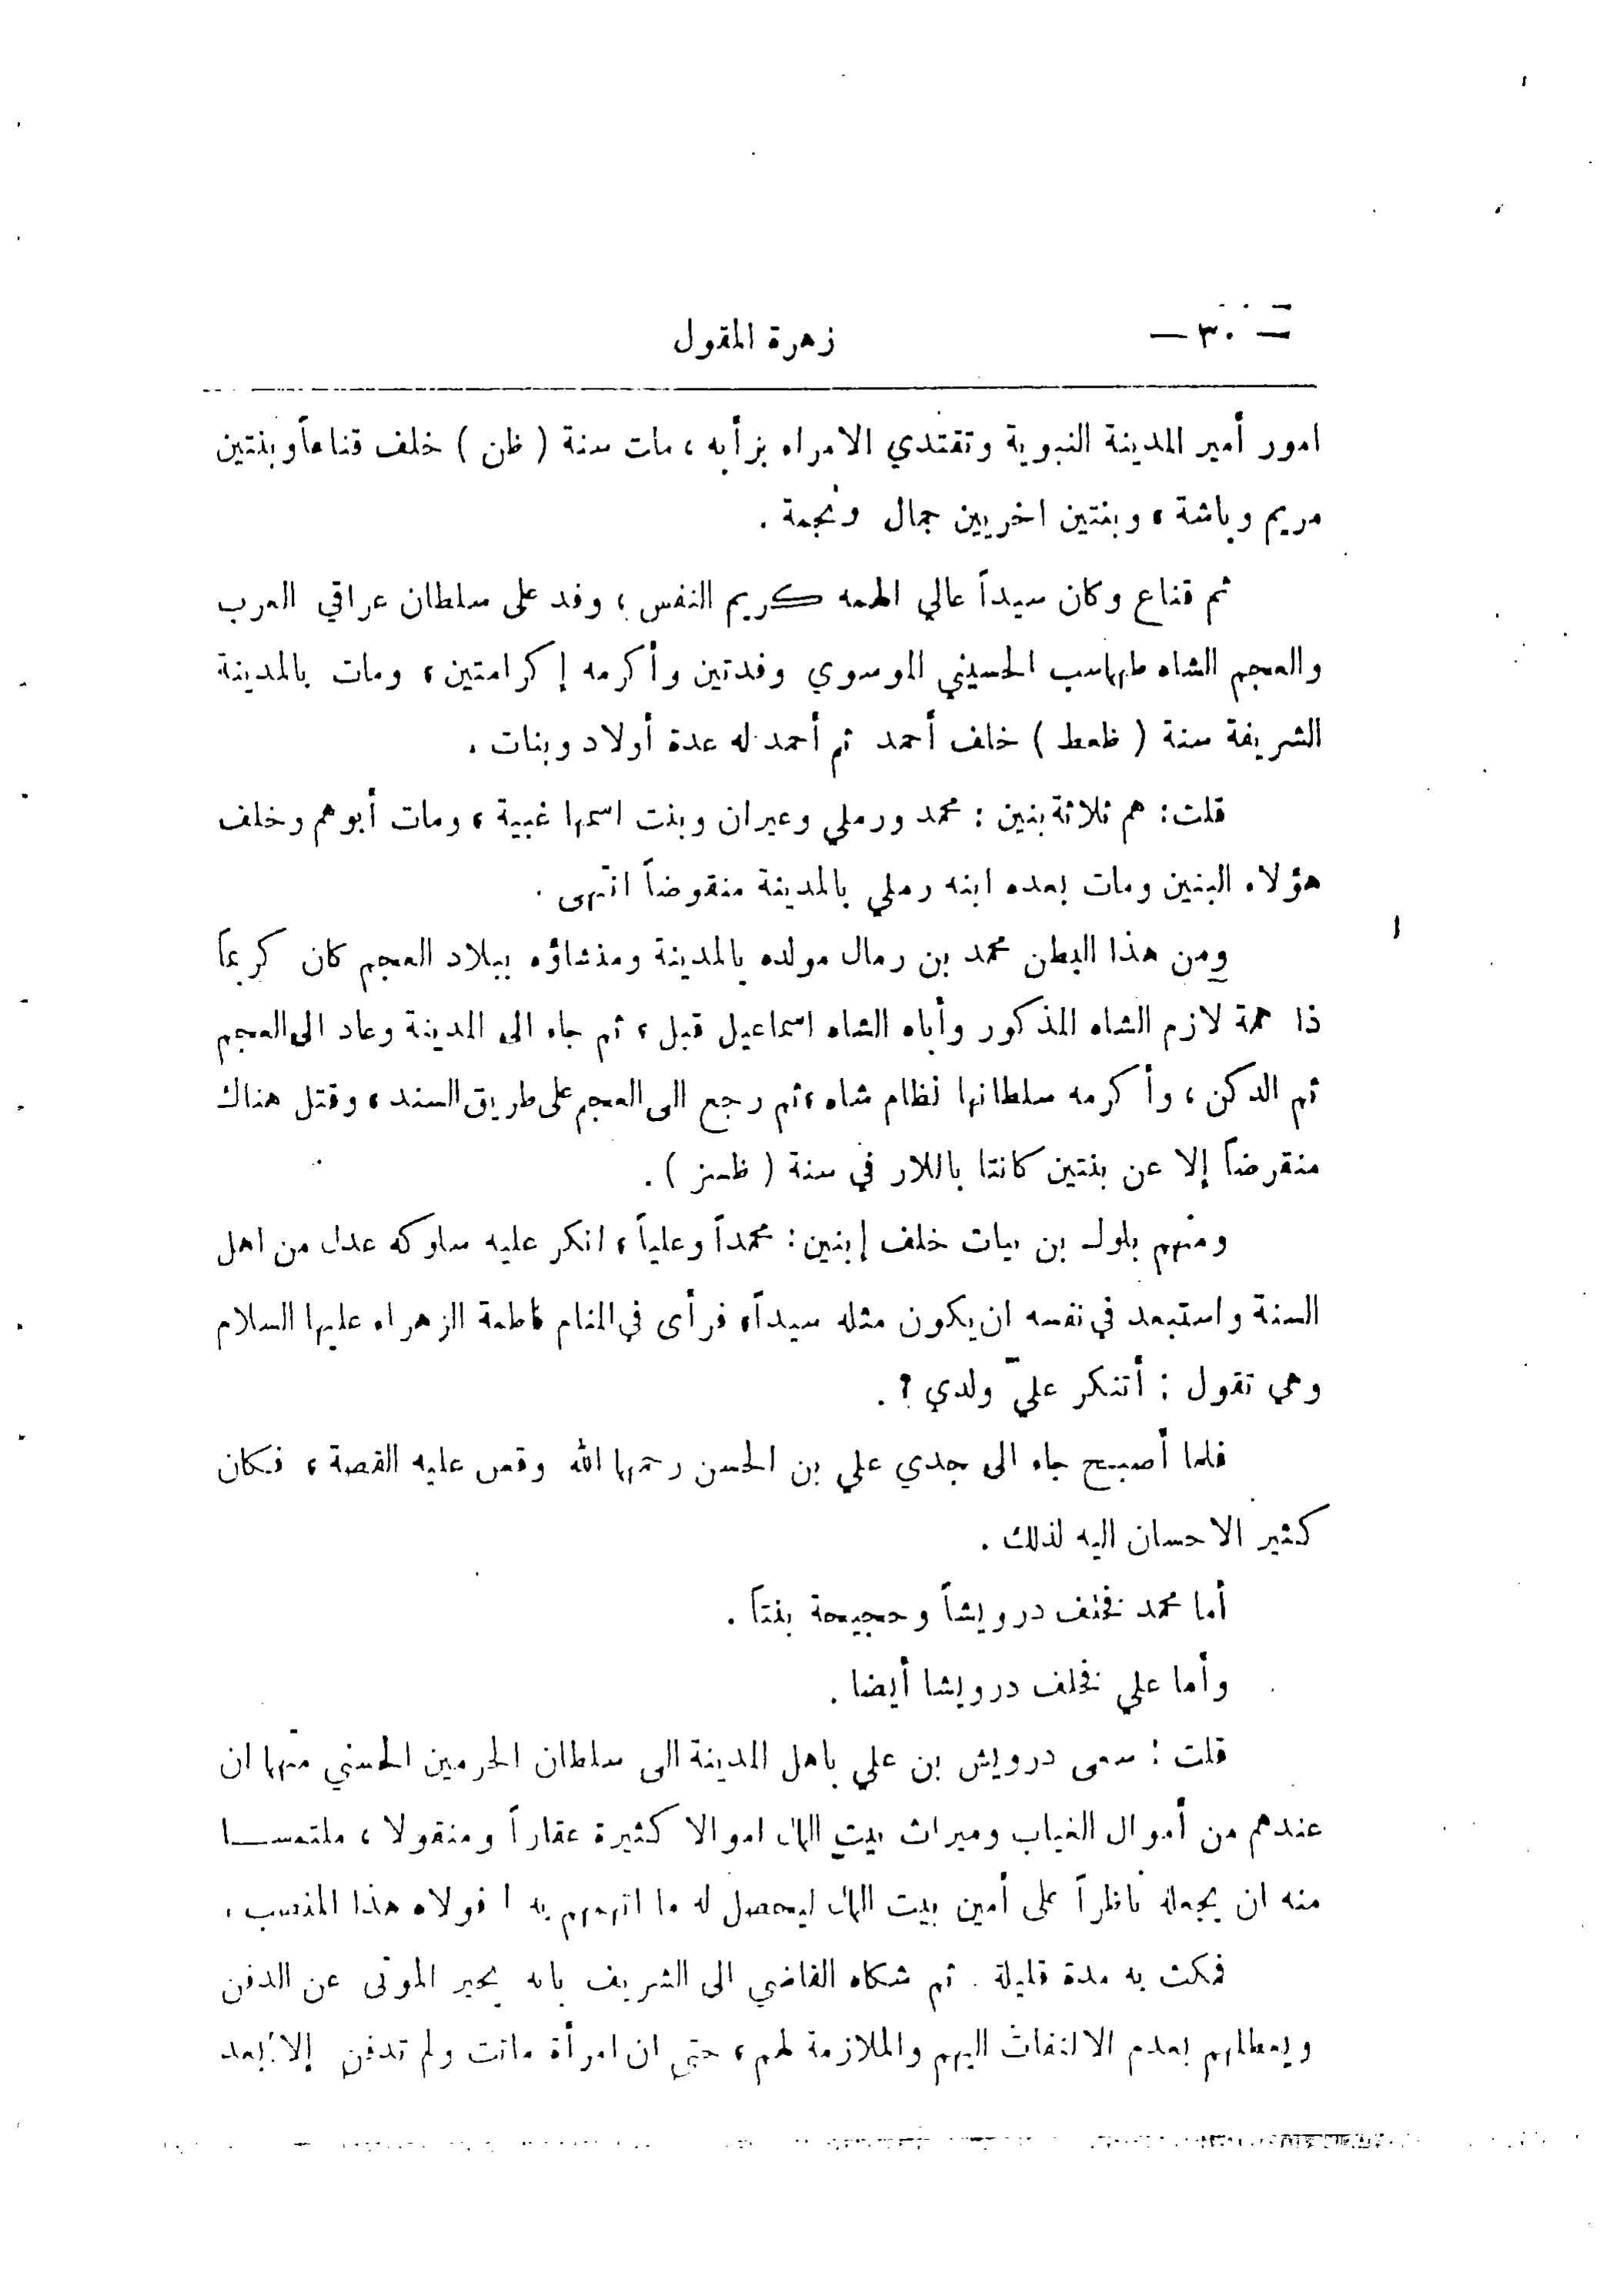 — ٣٠ — زهرة المقول
امور أمير المدينة النبوية وتقتدي الامراء برأيه ، مات سنة ( ظن ) خلف قناعاً وبنتين
مريم وباشة ، وبنتين اخريين جمال ونجمة .
ثم قناع وكان سيداً عالي الهمه كريم النفس ، وفد على سلطان عراقي العرب
والعجم الشاه طهماسب الحسيني الموسوي وفدتين وأكرمه إكرامتين ، ومات بالمدينة
الشريفة سنة ( ظعط ) خلف أحمد ثم أحمد له عدة أولاد وبنات .
قلت : هم ثلاثة بنين : محمد ورملي وعيران وبنت اسمها غبية ، ومات أبوهم وخلف
هؤلاء البنين ومات بعده ابنه رملي بالمدينة منقوضاً انتهى .
ومن هذا البطن محمد بن رمال مولده بالمدينة ومنشاؤه ببلاد العجم كان كريماً
ذا همة لازم الشاه المذكور وأباه الشاه اسماعيل قبل ، ثم جاء الى المدينة وعاد الى العجم
ثم الدكن ، وأكرمه سلطانها نظام شاه ، ثم رجع الى العجم على طريق السند ، وقتل هناك
منقرضاً إلا عن بنتين كانتا باللار في سنة ( ظسز ) .
ومنهم بلول بن بيات خلف إبنين : محمداً وعلياً ، انكر عليه سلوكه عدل من اهل
السنة واستبعد في نفسه ان يكون مثله سيداً ، فرأى في المنام فاطمة الزهراء عليها السلام
وهي تقول : أتنكر عليّ ولدي ؟ .
فلما أصبح جاء الى جدي علي بن الحسن رحمهما الله وقص عليه القصة ، فكان
كثير الاحسان اليه لذلك .
أما محمد فخلف درويشاً وحجيحة بنتاً .
وأما علي فخلف درويشا أيضا .
قلت : سعى درويش بن علي باهل المدينة الى سلطان الحرمين الحسني متهما ان
عندهم من أموال الغياب وميراث بيت المال اموالا كثيرة عقاراً ومنقولا ، ملتمسا
منه ان يجعله ناظراً على أمين بيت المال ليحصل له ما اتهمهم به ! فولاه هذا المنصب ،
فمكث به مدة قليلة . ثم شكاه القاضي الى الشريف بانه يحير الموتى عن الدفن
ويعطلهم بعدم الالتفات اليهم والملازمة لهم ، حتى ان امرأة ماتت ولم تدفن إلا بعد